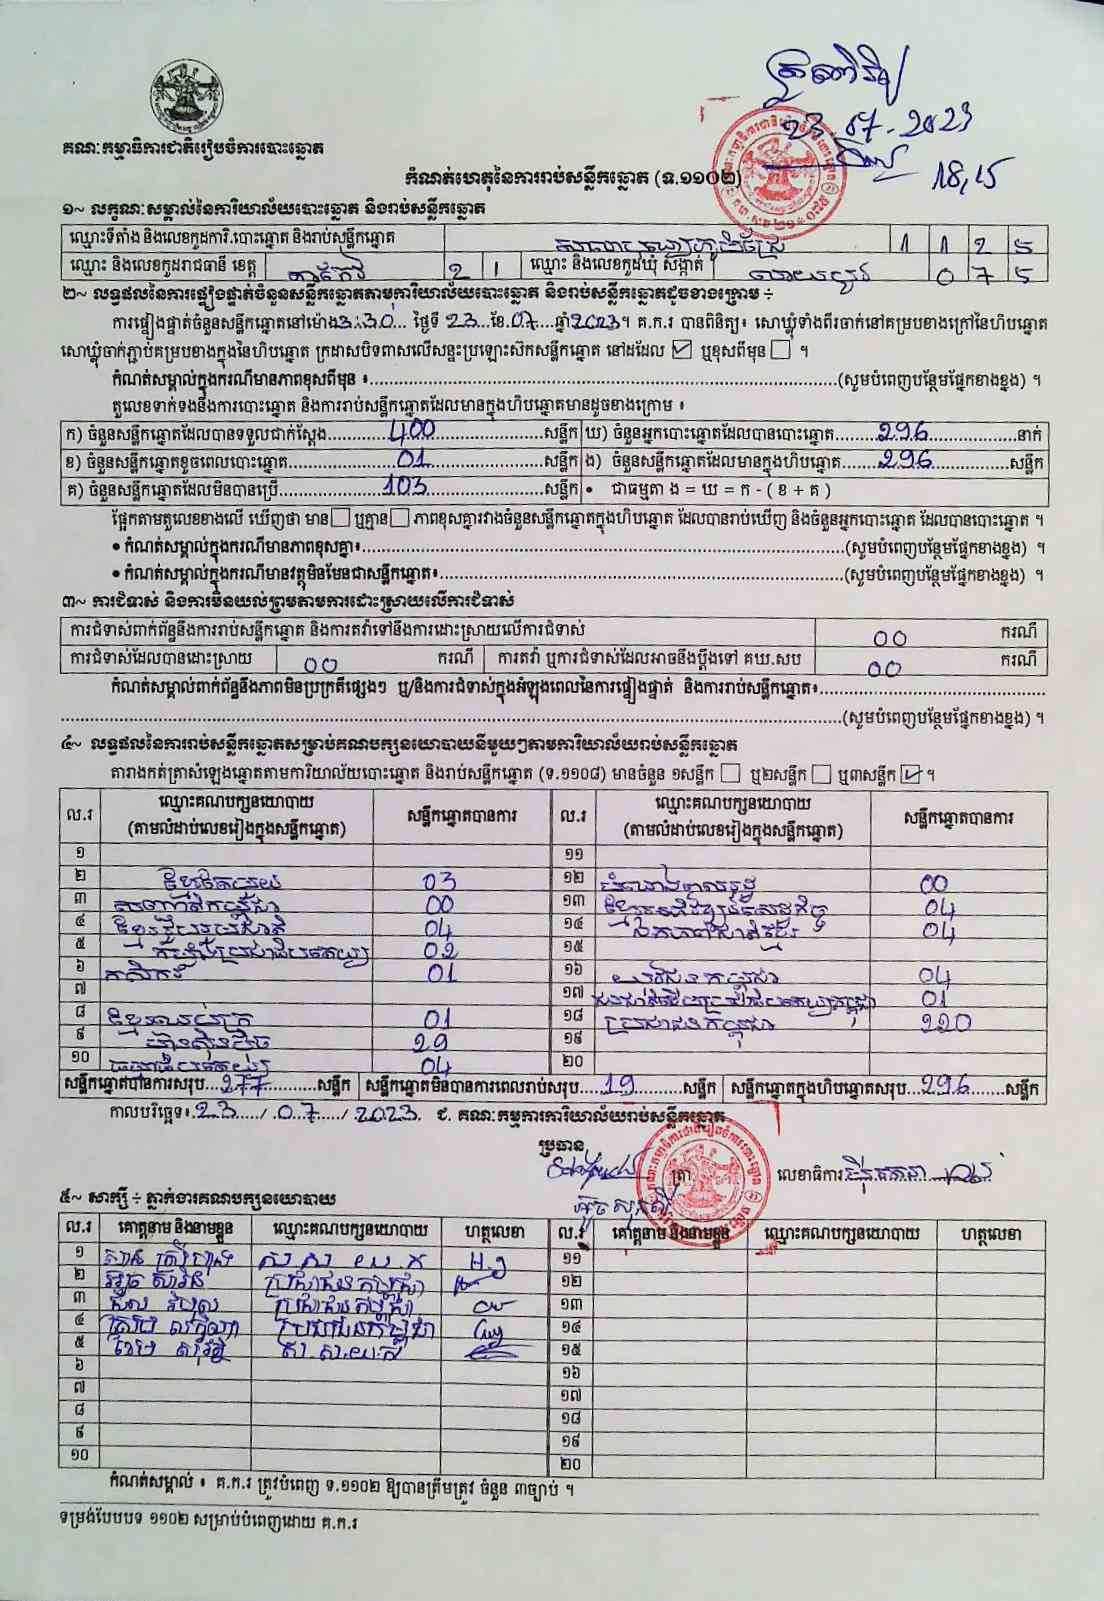 23.07.2023
18,15
គណៈកម្មាធិការជាតិរៀបចំការបោះឆ្នោត
កំណត់ហេតុនៃការរាប់សន្លឹកឆ្នោត (ទ.១១០២)
១~ លក្ខណៈសម្គាល់នៃការិយាល័យបោះឆ្នោត និងរាប់សន្លឹកឆ្នោត
ឈ្មោះទីតាំង និងលេខកូដការិ.បោះឆ្នោត និងរាប់សន្លឹកឆ្នោត 1 1 2 5
ឈ្មោះ និងលេខកូដរាជធានី ខេត្ត តាកែវ 2 1 ឈ្មោះ និងលេខកូដឃុំ សង្កាត់ 0 7 5
២~ លទ្ធផលនៃការផ្ទៀងផ្ទាត់ចំនួនសន្លឹកឆ្នោតតាមការិយាល័យបោះឆ្នោត និងរាប់សន្លឹកឆ្នោតដូចខាងក្រោម ÷
ការផ្ទៀងផ្ទាត់ចំនួនសន្លឹកឆ្នោតនៅម៉ោង 3:30 ថ្ងៃទី 23 ខែ 07 ឆ្នាំ 2023 ។ គ.ក.រ បានពិនិត្យ៖ សោឃ្លុំទាំងពីរចាក់នៅគម្របខាងក្រៅនៃហិបឆ្នោត
សោឃ្លុំចាក់ភ្ជាប់គម្របខាងក្នុងនៃហិបឆ្នោត ក្រដាសបិទពាសលើសន្ទះប្រឡោះស៊កសន្លឹកឆ្នោត នៅដដែល ☑ ឬខុសពីមុន ☐ ។
កំណត់សម្គាល់ក្នុងករណីមានភាពខុសពីមុន ៖ (សូមបំពេញបន្ថែមផ្នែកខាងខ្នង) ។
តួលេខទាក់ទងនឹងការបោះឆ្នោត និងការរាប់សន្លឹកឆ្នោតដែលមានក្នុងហិបឆ្នោតមានដូចខាងក្រោម ៖
ក) ចំនួនសន្លឹកឆ្នោតដែលបានទទួលជាក់ស្តែង 400 សន្លឹក ឃ) ចំនួនអ្នកបោះឆ្នោតដែលបានបោះឆ្នោត 296 នាក់
ខ) ចំនួនសន្លឹកឆ្នោតខូចពេលបោះឆ្នោត 01 សន្លឹក ង) ចំនួនសន្លឹកឆ្នោតដែលមានក្នុងហិបឆ្នោត 296 សន្លឹក
គ) ចំនួនសន្លឹកឆ្នោតដែលមិនបានប្រើ 103 សន្លឹក • ជាធម្មតា ង = ឃ = ក - ( ខ + គ )
ផ្អែកតាមតួលេខខាងលើ ឃើញថា មាន ☐ ឬគ្មាន ☐ ភាពខុសគ្នារវាងចំនួនសន្លឹកឆ្នោតក្នុងហិបឆ្នោត ដែលបានរាប់ឃើញ និងចំនួនអ្នកបោះឆ្នោត ដែលបានបោះឆ្នោត ។
• កំណត់សម្គាល់ក្នុងករណីមានភាពខុសគ្នា៖ (សូមបំពេញបន្ថែមផ្នែកខាងខ្នង) ។
• កំណត់សម្គាល់ក្នុងករណីមានវត្ថុមិនមែនជាសន្លឹកឆ្នោត៖ (សូមបំពេញបន្ថែមផ្នែកខាងខ្នង) ។
៣~ ការជំទាស់ និងការមិនយល់ព្រមតាមការដោះស្រាយលើការជំទាស់
ការជំទាស់ពាក់ព័ន្ធនឹងការរាប់សន្លឹកឆ្នោត និងការតវ៉ាទៅនឹងការដោះស្រាយលើការជំទាស់ 00 ករណី
ការជំទាស់ដែលបានដោះស្រាយ 00 ករណី ការតវ៉ា ឬការជំទាស់ដែលអាចនឹងប្តឹងទៅ គឃ.សប 00 ករណី
កំណត់សម្គាល់ពាក់ព័ន្ធនឹងភាពមិនប្រក្រតីផ្សេងៗ ឬ/និងការជំទាស់ក្នុងអំឡុងពេលនៃការផ្ទៀងផ្ទាត់ និងការរាប់សន្លឹកឆ្នោត៖
(សូមបំពេញបន្ថែមផ្នែកខាងខ្នង) ។
៤~ លទ្ធផលនៃការរាប់សន្លឹកឆ្នោតសម្រាប់គណបក្សនយោបាយនីមួយៗតាមការិយាល័យរាប់សន្លឹកឆ្នោត
តារាងកត់ត្រាសំឡេងឆ្នោតតាមការិយាល័យបោះឆ្នោត និងរាប់សន្លឹកឆ្នោត (ទ.១១០៨) មានចំនួន ១សន្លឹក ☐ ឬ២សន្លឹក ☐ ឬ៣សន្លឹក ☑ ។
ល.រ ឈ្មោះគណបក្សនយោបាយ (តាមលំដាប់លេខរៀងក្នុងសន្លឹកឆ្នោត) សន្លឹកឆ្នោតបានការ ល.រ ឈ្មោះគណបក្សនយោបាយ (តាមលំដាប់លេខរៀងក្នុងសន្លឹកឆ្នោត) សន្លឹកឆ្នោតបានការ
១ ១១
២ ខ្មែរតែមួយ 03 ១២ 00
៣ 00 ១៣ ខ្មែរអភិវឌ្ឍន៍សេដ្ឋកិច្ច 04
៤ ខ្មែររួបរួមជាតិ 04 ១៤ ឯកភាពជាតិខ្មែរ 04
៥ កម្លាំងប្រជាធិបតេយ្យ 02 ១៥
៦ កសិករ 01 ១៦ យុវជនកម្ពុជា 04
៧ ១៧ 01
៨ ខ្មែរឈប់ក្រ 01 ១៨ ប្រជាជនកម្ពុជា 220
៩ ហ៊្វុនស៊ិនប៉ិច 29 ១៩
១០ 04 ២០
សន្លឹកឆ្នោតបានការសរុប 277 សន្លឹក សន្លឹកឆ្នោតមិនបានការពេលរាប់សរុប 19 សន្លឹក សន្លឹកឆ្នោតក្នុងហិបឆ្នោតសរុប 296 សន្លឹក
កាលបរិច្ឆេទ៖ 23 / 07 / 2023 ជ. គណៈកម្មការការិយាល័យរាប់សន្លឹកឆ្នោត
ប្រធាន
ត្រា លេខាធិការ
៥~ សាក្សី ÷ ភ្នាក់ងារគណបក្សនយោបាយ
ល.រ គោត្តនាម និងនាមខ្លួន ឈ្មោះគណបក្សនយោបាយ ហត្ថលេខា ល.រ គោត្តនាម និងនាមខ្លួន ឈ្មោះគណបក្សនយោបាយ ហត្ថលេខា
១ ស.ស.យ.ក ១១
២ ប្រជាជនកម្ពុជា ១២
៣ ប្រជាជនកម្ពុជា ១៣
៤ ប្រជាជនកម្ពុជា ១៤
៥ ១៥
៦ ១៦
៧ ១៧
៨ ១៨
៩ ១៩
១០ ២០
កំណត់សម្គាល់ ៖ គ.ក.រ ត្រូវបំពេញ ទ.១១០២ ឱ្យបានត្រឹមត្រូវ ចំនួន ៣ច្បាប់ ។
ទម្រង់បែបបទ ១១០២ សម្រាប់បំពេញដោយ គ.ក.រ